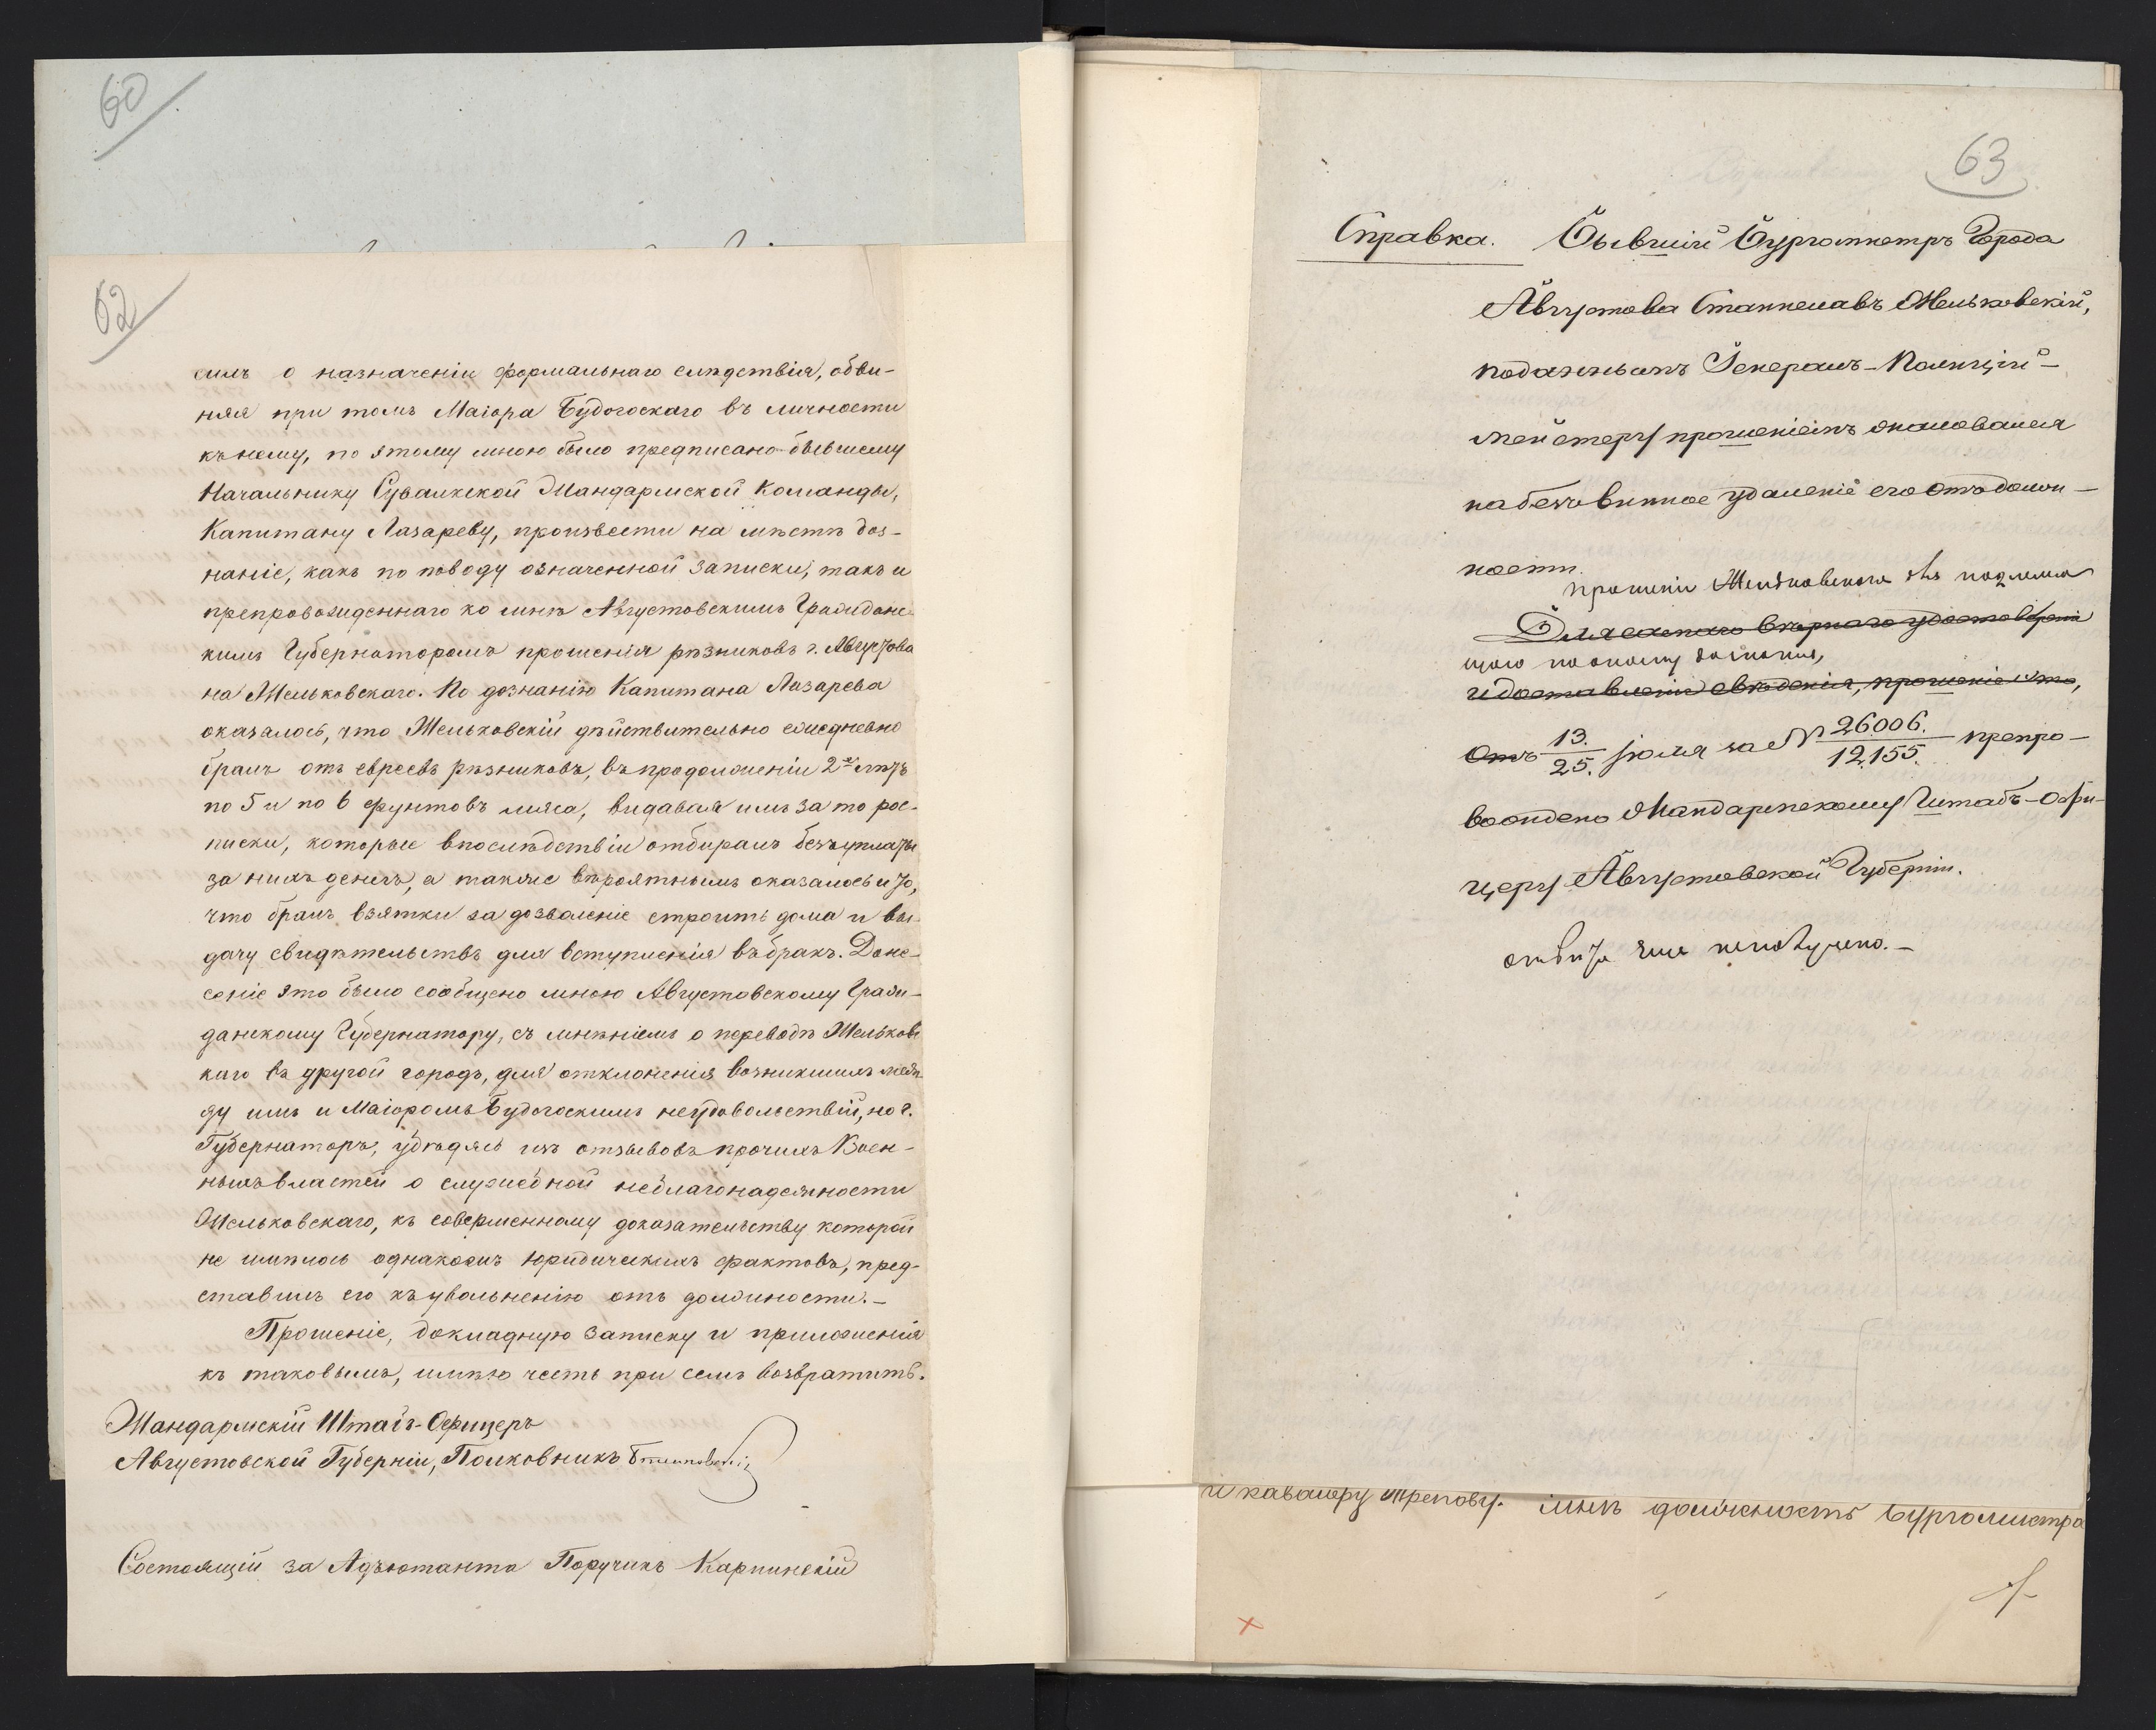 60
62
силъ о назначеніи формальнаго слѣдствія, обви-
няя при томъ Маіора Будогоскаго въ личности
къ нему, по этому мною было предписано бывшему
Начальнику Сувалкской Жандармской Команды,
Капитану Лазареву, произвести на мѣстѣ доз-
наніе, какъ по поводу означенной записки, такъ и
препровожденнаго ко мнѣ Августовскимъ Граждане-
кимъ Губернаторомъ прошенія рѣзниковъ г. Августова
на Жельковскаго. По дознанію Капитана Лазарева
оказалось, что Жельковскій дѣйствительно ежедневно
бралъ отъ евреевъ рѣзниковъ, въ продолженіи 2хъ лѣтъ
по 5 и по 6 фунтовъ мяса, выдавая имъ за то рос-
писки, которые впослѣдствіи отбиралъ безъ уплаты
за нихъ денегъ, а также вѣроятнымъ оказалось и то,
что бралъ взятки за дозволеніе строить дома и вы-
дачу свидѣтельствъ для вступленія въ бракъ. Доне-
сеніе это было сообщено мною Августовскому Граж-
данскому Губернатору, съ мнѣніемъ о переводѣ Жельковс
каго въ другой городъ, для отклоненія возникшихъ меж-
ду имъ и Маіоромъ Будогоскимъ неудовольствій, но г.
Губернаторъ, убѣдясь изъ отзывовъ прочихъ Воен-
ныхъ властей о служебной неблагонадежности
Жельковскаго, къ совершенному доказательству которой
не имѣлось однакожъ юридическихъ фактовъ, пред-
ставилъ его къ увольненію отъ должности.-
Прошеніе, докладную записку и приложенія
къ таковымъ, имѣю честь при семъ возвратить.
Жандармскій Штабъ-Офицеръ
Августовской Губерніи, Полковникъ
Состоящій за Адъютанта Поручикъ Карпинскій
63
Справка. Бывшій Бургомистръ Города
Августова Станиславъ Жельковскій,
поданнымъ Генералъ-Полиції-
мейстеру прошеніемъ жаловался
на безвинное удаленіе его отъ долж-
ности.
прошеніе Жельковскаго для надлежа
Для самаго вѣрнаго удостовѣренія
щаго по оному дознанія,
и доставленія свѣдѣнія, прошеніе это,
отъ 13./25. Іюля за № 26006./12,155. препро-
вождено Жандармскому Штабъ-Офи-
церу Августовской Губерніи.
отвѣта еще неполучено.-
и кавалеру Трепову. мнѣ должность бургомистра